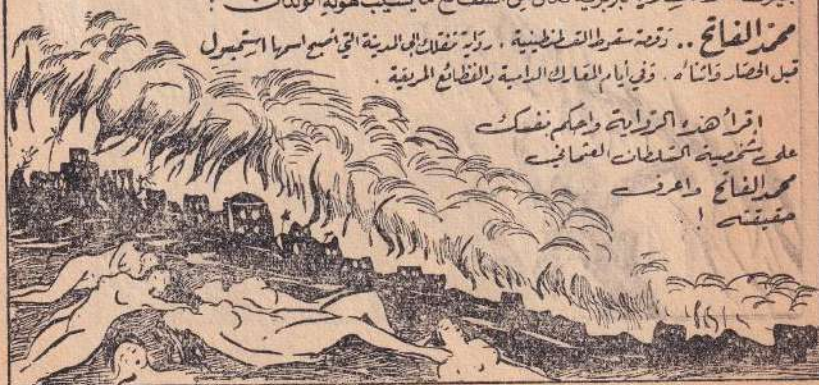 من الفظائع ما يشيب لهوله الولدان !
محمد الفاتح .. وقصة سقوط القسطنطينية ، رواية تنقلك الى المدينة التي أصبح اسمها استمبول
قبل الحصار واثناءه . وفي أيام المعارك الدامية والفظائع المريعة .
إقرأ هذه الرواية واحكم بنفسك
على شخصية السلطان العثماني
محمد الفاتح واعرف
حقيقته !